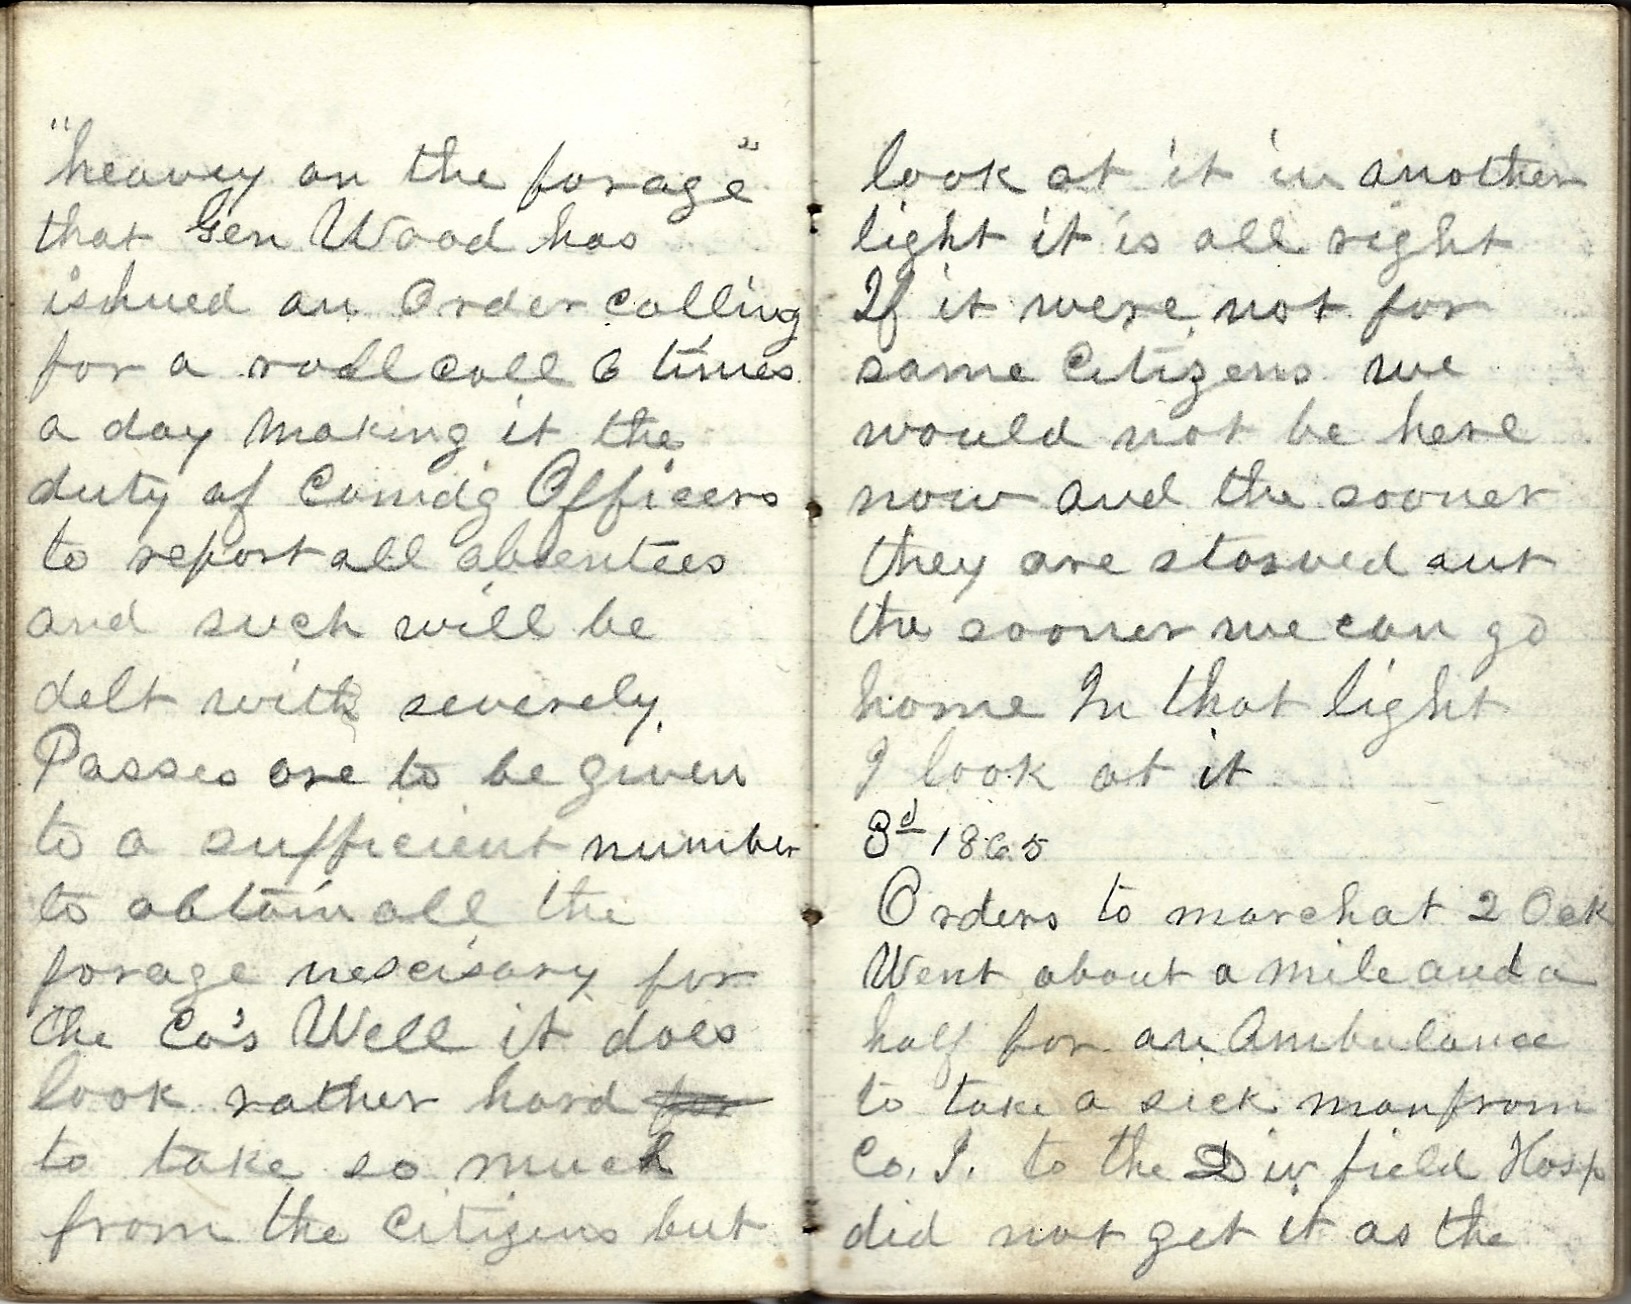 "heavey on the forage"
that Gen Wood has
ishued an Order calling
for a roll call 6 times
a day making it the
duty of Comdg Officers
to report all absentees
and such will be
delt with severely.
Passes are to be given
to a sufficient number
to obtain all the
forage nescisary for
the Co's Well it does
look rather hard for
to take so much
from the Citizens but
look at it in another
light it is all right
If it were not for
some Citizens we
would not be here
now and the sooner
they are starved out
the sooner we can go
home In that light
I look at it
3d 1865
Orders to march at 2 Ock
Went about a mile and a
half for an Ambulance
to take a sick man from
Co. I. to the Div field Hosp
did not get it as the